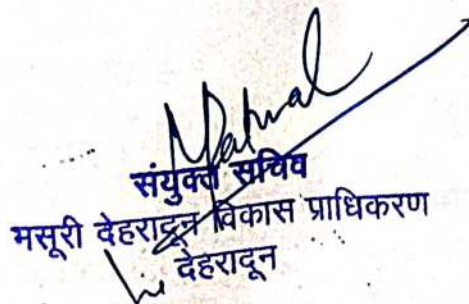 संयुक्त सचिव
मसूरी देहरादून विकास प्राधिकरण
देहरादून